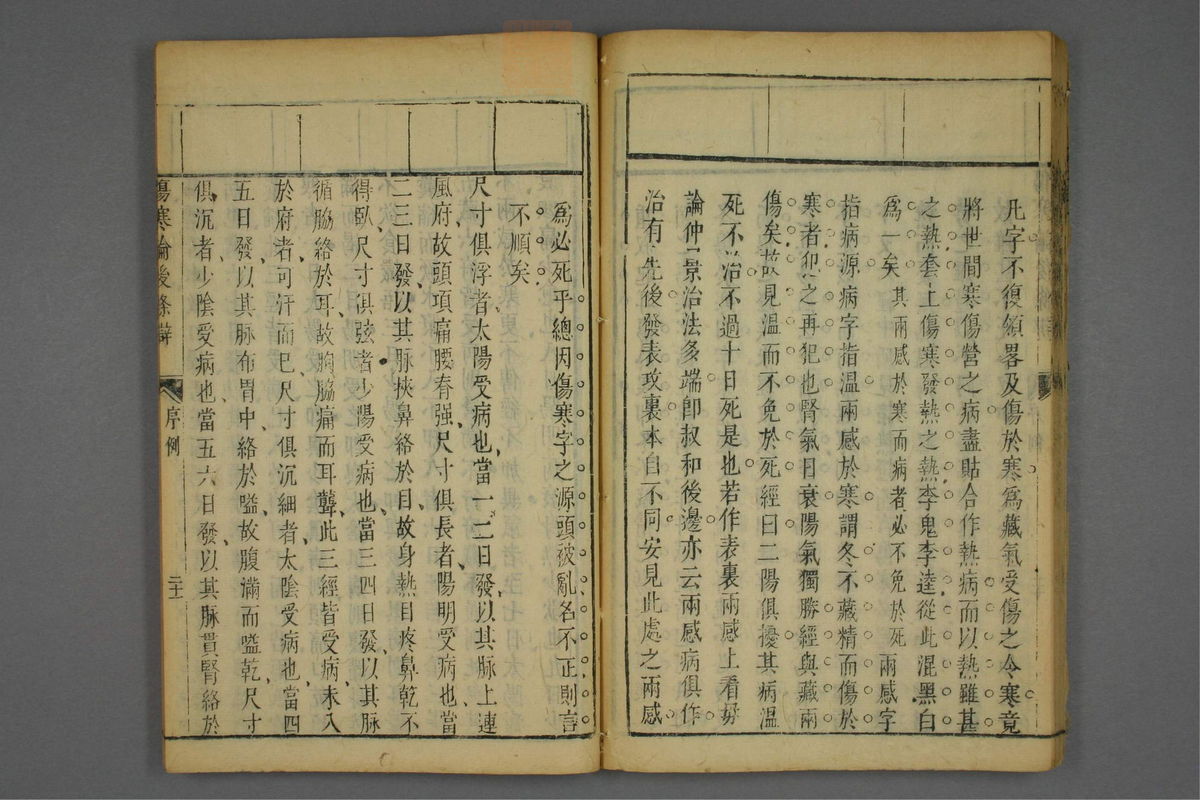 凡字不復領畧及傷於寒爲藏氣受傷之令寒竟
將世間寒傷營之病盡貼合作熱病而以熱雖甚
之熱套上傷寒發熱之熱李鬼李逵從此混黑白
爲一矣其兩感於寒而病者必不免於死兩感字
指病源病字指温兩感於寒謂冬不藏精而傷於
寒者犯之再犯也腎氣日衰陽氣獨勝經與藏兩
傷矣故見温而不免於死經曰二陽俱擾其病温
死不治不過十日死是也若作表裏兩感上看毋
論仲景治法多端卽叔和後邊亦云兩感病俱作
治有先後發表攻裏本自不同安見此處之兩感
爲必死乎總因傷寒字之源頭被亂名不正則言
不順矣
尺寸俱浮者太陽受病也當一二日發以其脉上連
風府故頭項痛腰脊强尺寸俱長者陽明受病也當
二三日發以其脉挾鼻絡於目故身熱目疼鼻乾不
得臥尺寸俱弦者少陽受病也當三四日發以其脉
循脇絡於耳故胸脇痛而耳聾此三經皆受病未入
於府者可汗而巳尺寸俱沉細者太陰受病也當四
五日發以其脉布胃中絡於嗌故腹滿而嗌乾尺寸
俱沉者少陰受病也當五六日發以其脉貫腎絡於
傷寒論後條辯 序例 二十